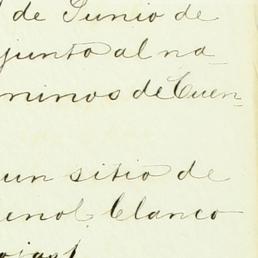 de Junio de
junto al na-
minos de Cuen-
un sitio de
Clanco